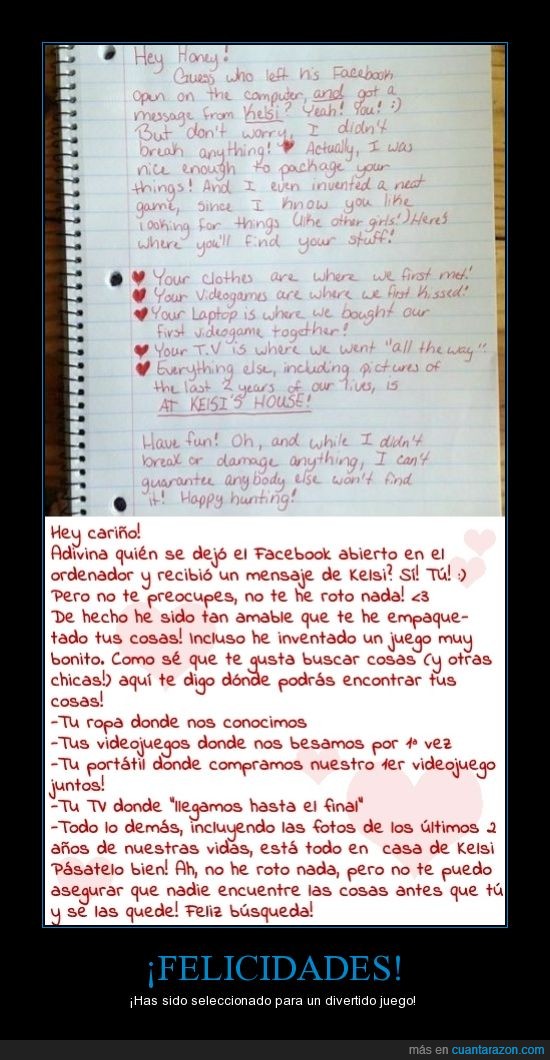 Hey Honey!
Guess who left his Facebook
open on the computer, and got a
message from Kelsi? Yeah! You! :)
But don't worry, I didn't
break anything! ♥ Actually, I was
nice enough to package your
things! And I even invented a neat
game, since I know you like
looking for things (like other girls!) Here's
where you'll find your stuff!
♥ Your clothes are where we first met!
♥ Your Videogames are where we first kissed!
♥ Your Laptop is where we bought our
first videogame together!
♥ Your T.V is where we went "all the way".
♥ Everything else, including pictures of
the last 2 years of our lives, is
AT KELSI'S HOUSE!
Have fun! Oh, and while I didn't
break or damage anything, I can't
guarantee anybody else won't find
it! Happy hunting!
Hey cariño!
Adivina quién se dejó el Facebook abierto en el
ordenador y recibió un mensaje de Kelsi? Sí! Tú! :)
Pero no te preocupes, no te he roto nada! <3
De hecho he sido tan amable que te he empaque-
tado tus cosas! Incluso he inventado un juego muy
bonito. Como sé que te gusta buscar cosas (y otras
chicas!) aquí te digo dónde podrás encontrar tus
cosas!
-Tu ropa donde nos conocimos
-Tus videojuegos donde nos besamos por 1ª vez
-Tu portátil donde compramos nuestro 1er videojuego
juntos!
-Tu TV donde "llegamos hasta el final"
-Todo lo demás, incluyendo las fotos de los últimos 2
años de nuestras vidas, está todo en casa de Kelsi
Pásatelo bien! Ah, no he roto nada, pero no te puedo
asegurar que nadie encuentre las cosas antes que tú
y se las quede! Feliz búsqueda!
¡FELICIDADES!
¡Has sido seleccionado para un divertido juego!
más en cuantarazon.com